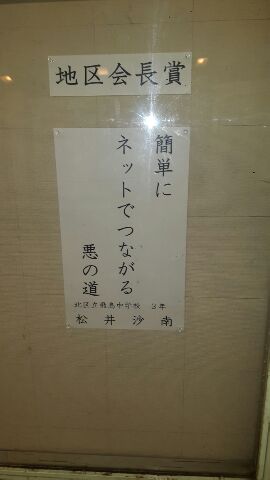 地区会長賞
簡単に
ネットでつながる
悪の道
北区立飛鳥中学校 3年
松井沙南